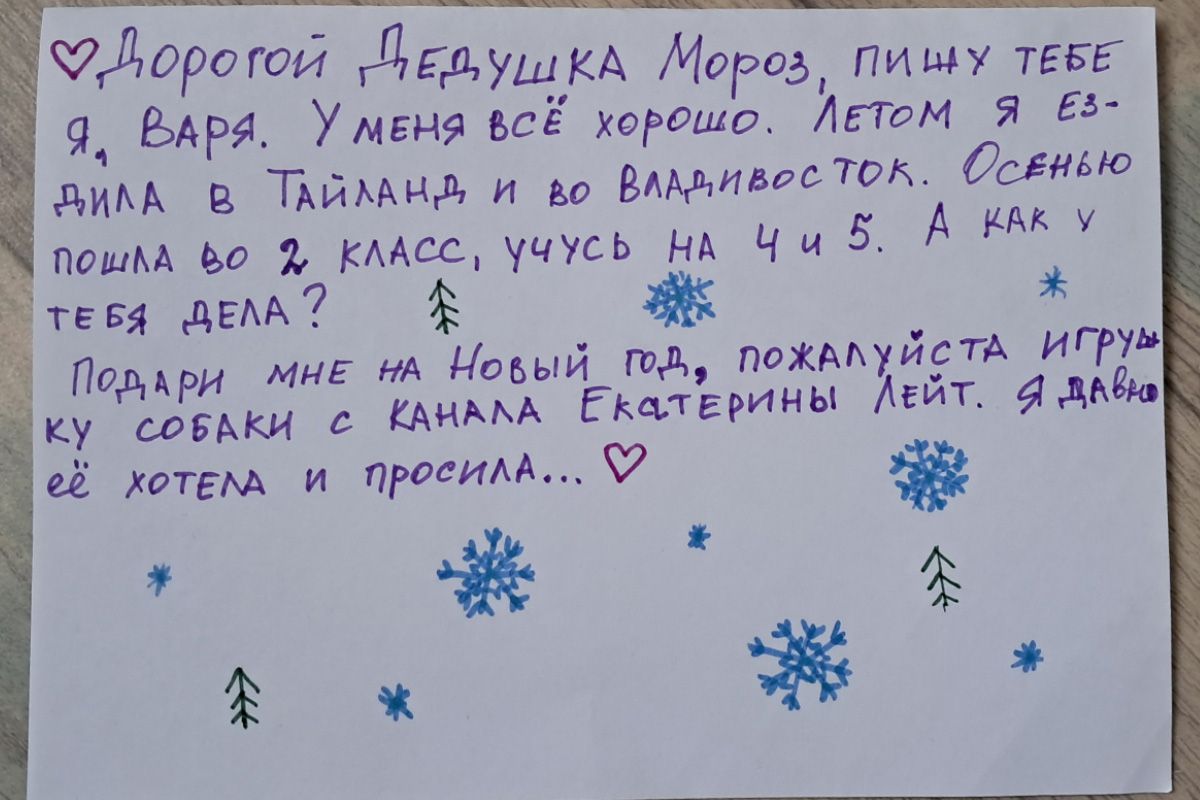 Дорогой Дедушка Мороз, пишу тебе
я, Варя. У меня всё хорошо. Летом я ез-
дила в Тайланд и во Владивосток. Осенью
пошла во 2 класс, учусь на 4 и 5. А как у
тебя дела?
Подари мне на Новый год, пожалуйста игруш
ку собаки с канала Екатерины Лейт. Я давно
её хотела и просила...